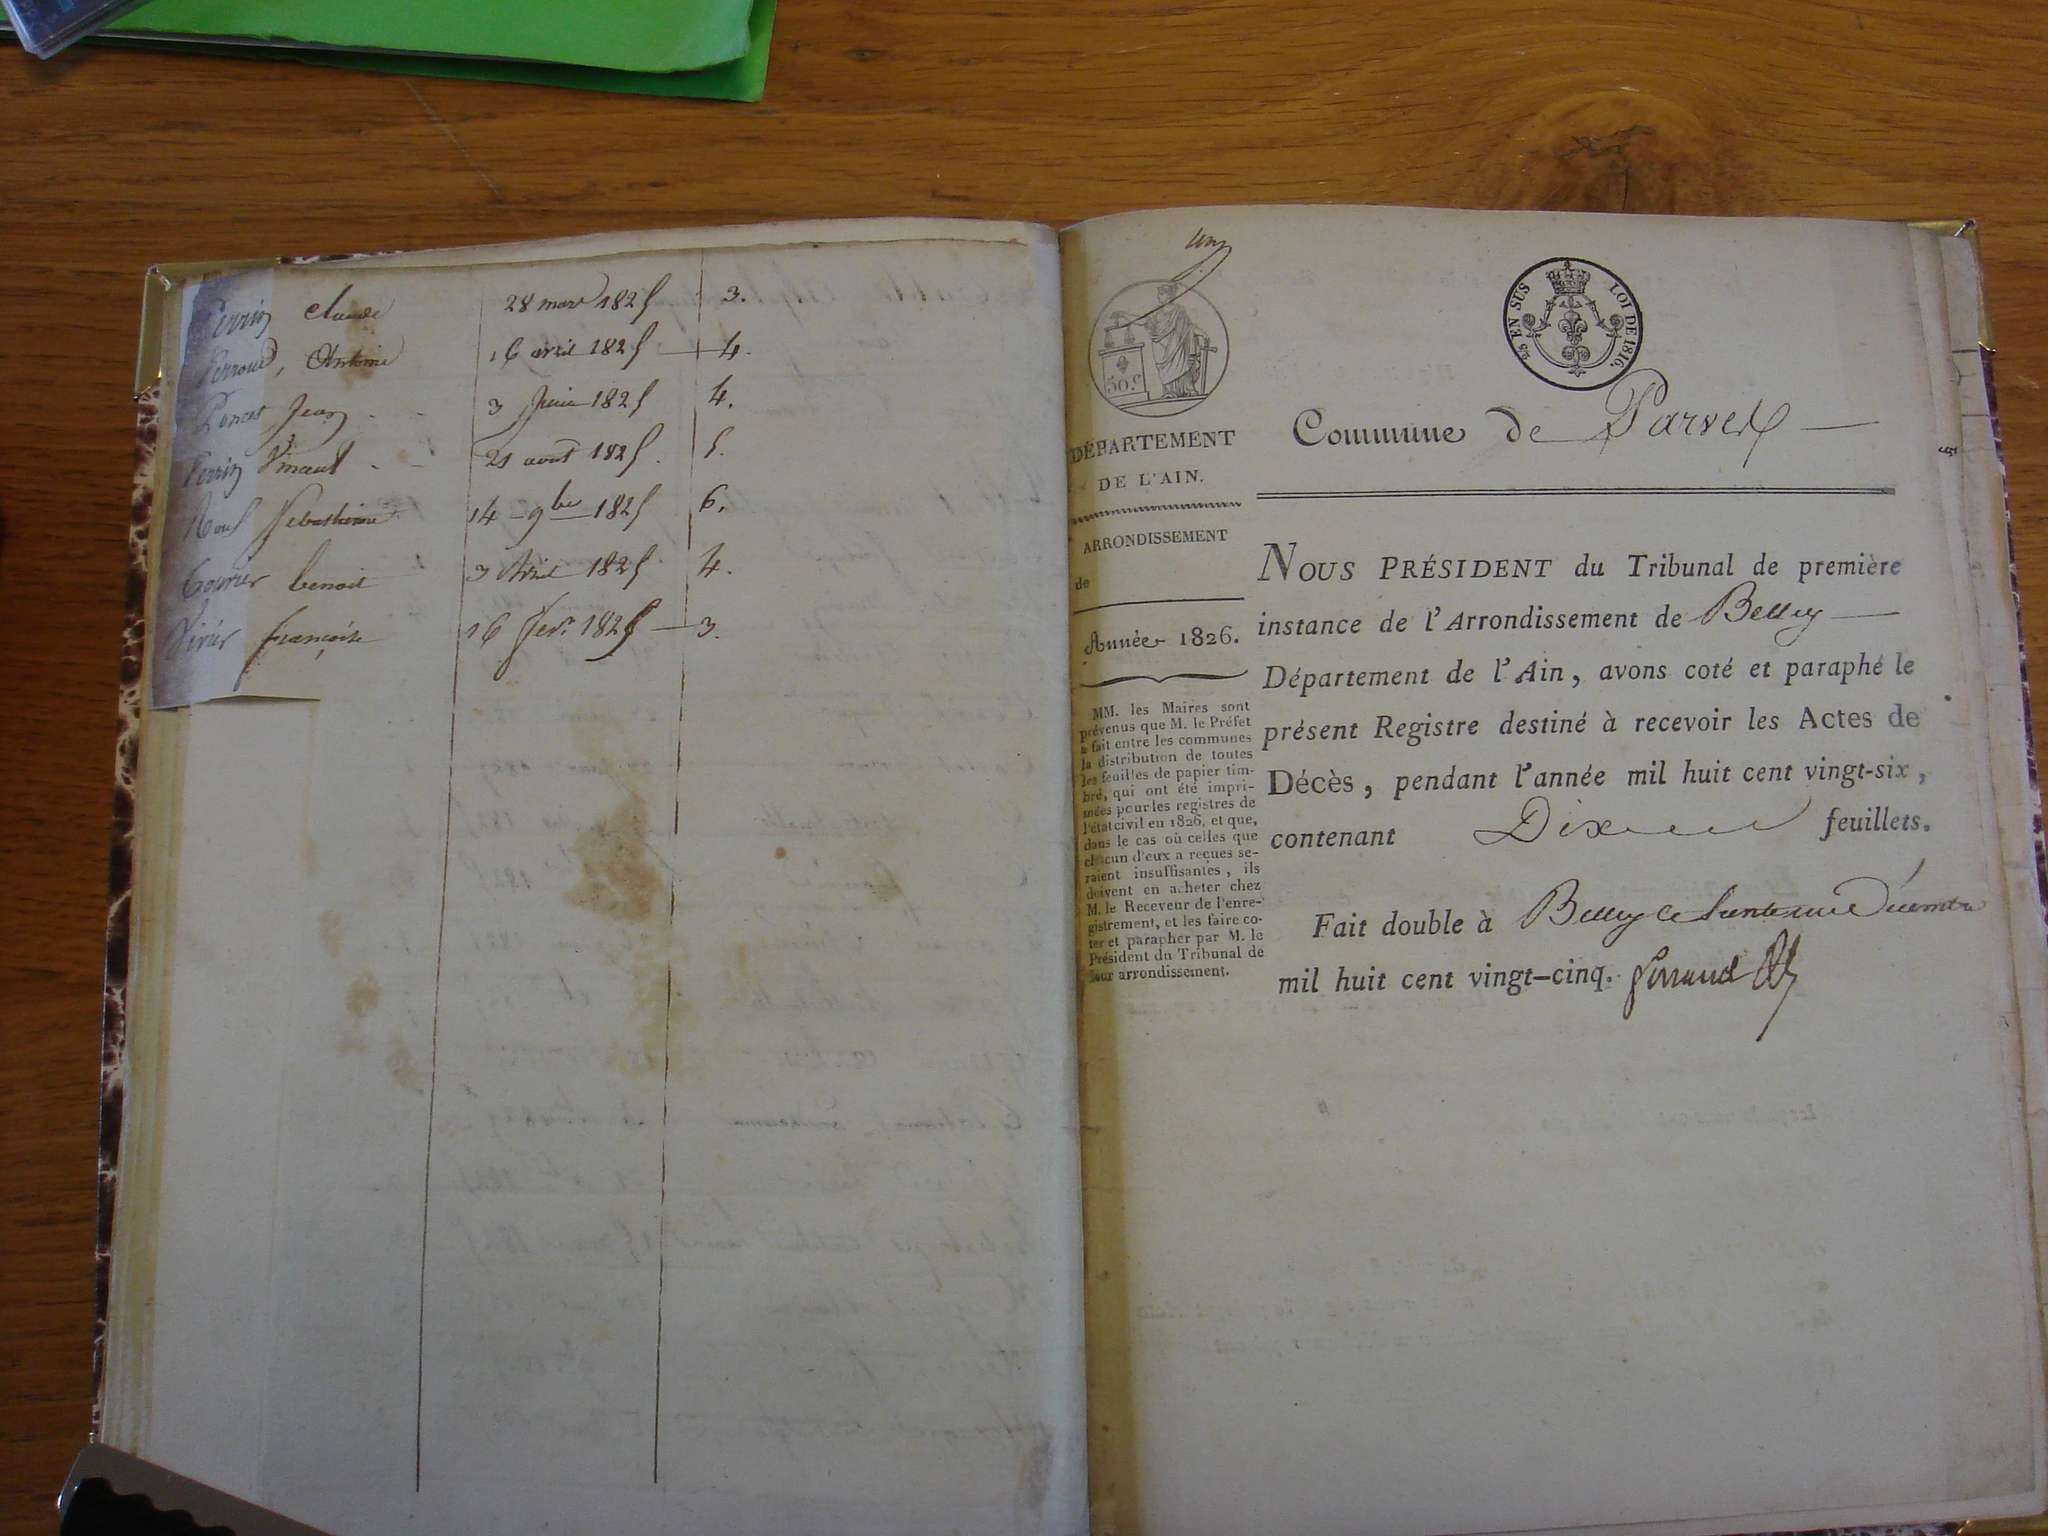 Perrin Claude 28 mars 1825 3.
Perroud, Antoine 16 avril 1825 4.
Poncet Jean 3 Juin 1825 4.
Perrin 21 août 1825. 5.
14 9bre 1825 6.
benoit 3 Avril 1825 4.
françoise 16 fevr. 1825 3.
un
50 c.
25 EN SUS LOI DE 1816.
DÉPARTEMENT
DE L'AIN.
ARRONDISSEMENT
de
Année 1826.
MM. les Maires sont
prévenus que M. le Préfet
a fait entre les communes
la distribution de toutes
les feuilles de papier tim-
bré, qui ont été impri-
mées pour les registres de
l'état civil en 1826, et que,
dans le cas où celles que
chacun d'eux a reçues se-
raient insuffisantes, ils
doivent en acheter chez
M. le Receveur de l'enre-
gistrement, et les faire co-
ter et parapher par M. le
Président du Tribunal de
leur arrondissement.
Commune de Parves
NOUS PRÉSIDENT du Tribunal de première
instance de l'Arrondissement de Belley
Département de l'Ain, avons coté et paraphé le
présent Registre destiné à recevoir les Actes de
Décès, pendant l'année mil huit cent vingt-six,
contenant Dix feuillets.
Fait double à Belley le Décembre
mil huit cent vingt-cinq.